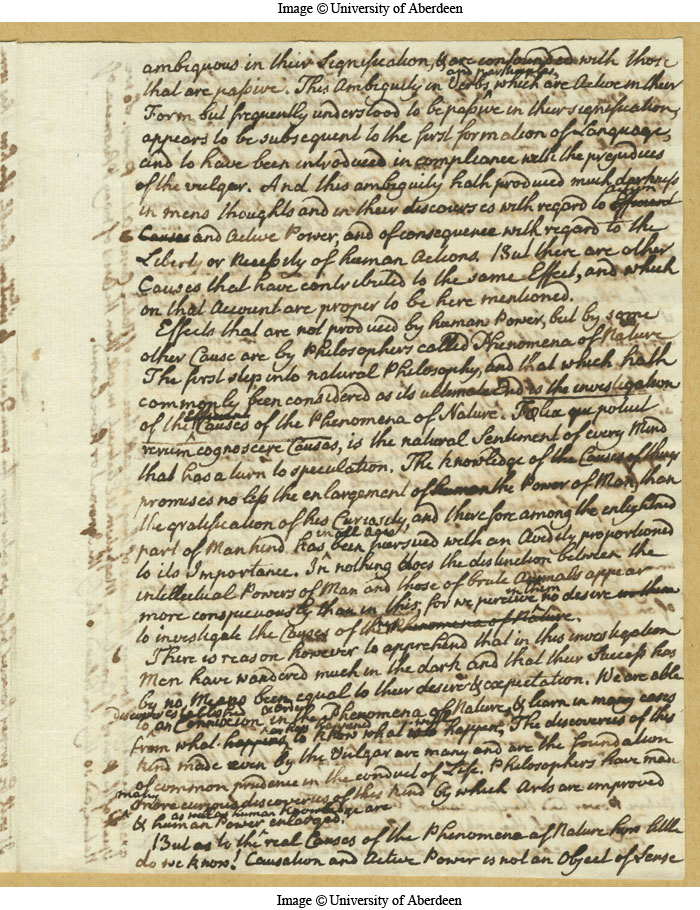 Image © University of Aberdeen
ambiguous in their Signification, & are confounded with those
that are passive. This Ambiguity in Verbs and participles, which are Active in their
Form but frequently understood to be passive in their signification,
appears to be subsequent to the first formation of Language,
and to have been introduced in compliance with the prejudices
of the vulgar. And this ambiguity hath produced much darkness
in mens thoughts and in their discourses with regard to Efficient Action
Causes and Active Power, and of consequence with regard to the
Liberty or Necessity of human Actions. But there are other
Causes that have contributed to the same Effect, and which
on that Account are proper to be here mentioned.
Effects that are not produced by human Power, but by some
other Cause are by Philosophers called Phenomena of Nature
The first step into natural Philosophy, and that which hath
commonly been considered as its ultimate End is the investigation
of the Causes of the Phenomena of Nature. Felix qui potuit
rerum cognoscere Causas, is the natural Sentiment of every Mind
that has a turn to speculation. The knowledge of the Causes of things
promises no less the enlargement of human the Power of Man, than
the gratification of his Curiosity, and therefore among the enlightned
part of Mankind has in all ages been pursued with an Avidity proportioned
to its Importance. In nothing does the distinction between the
intellectual Powers of Man and those of brute Animals appear
more conspicuously than in this, for we perceive in them no desire in them
to investigate the Causes of the Phenomena of Nature.
There is reason however to apprehend that in this investigation
Men have wandered much in the dark and that their Success has
by no Means been equal to their desire & expectation. We are able
to discover established an order & Connexion in the Phenomena of Nature, & learn in many cases
from what happens has happened to know what will happen, The discoveries of this
kind made even by the Vulgar are many and are the foundation
of common prudence in the conduct of Life. Philosophers have made
many more curious discoveries of this kind by which Arts are improved
& human Power as well as human Knowledge are enlarged.
But as to the real Causes of the Phenomena of Nature how little
do we know! Causation and Active Power is not an Object of Sense
Image © University of Aberdeen